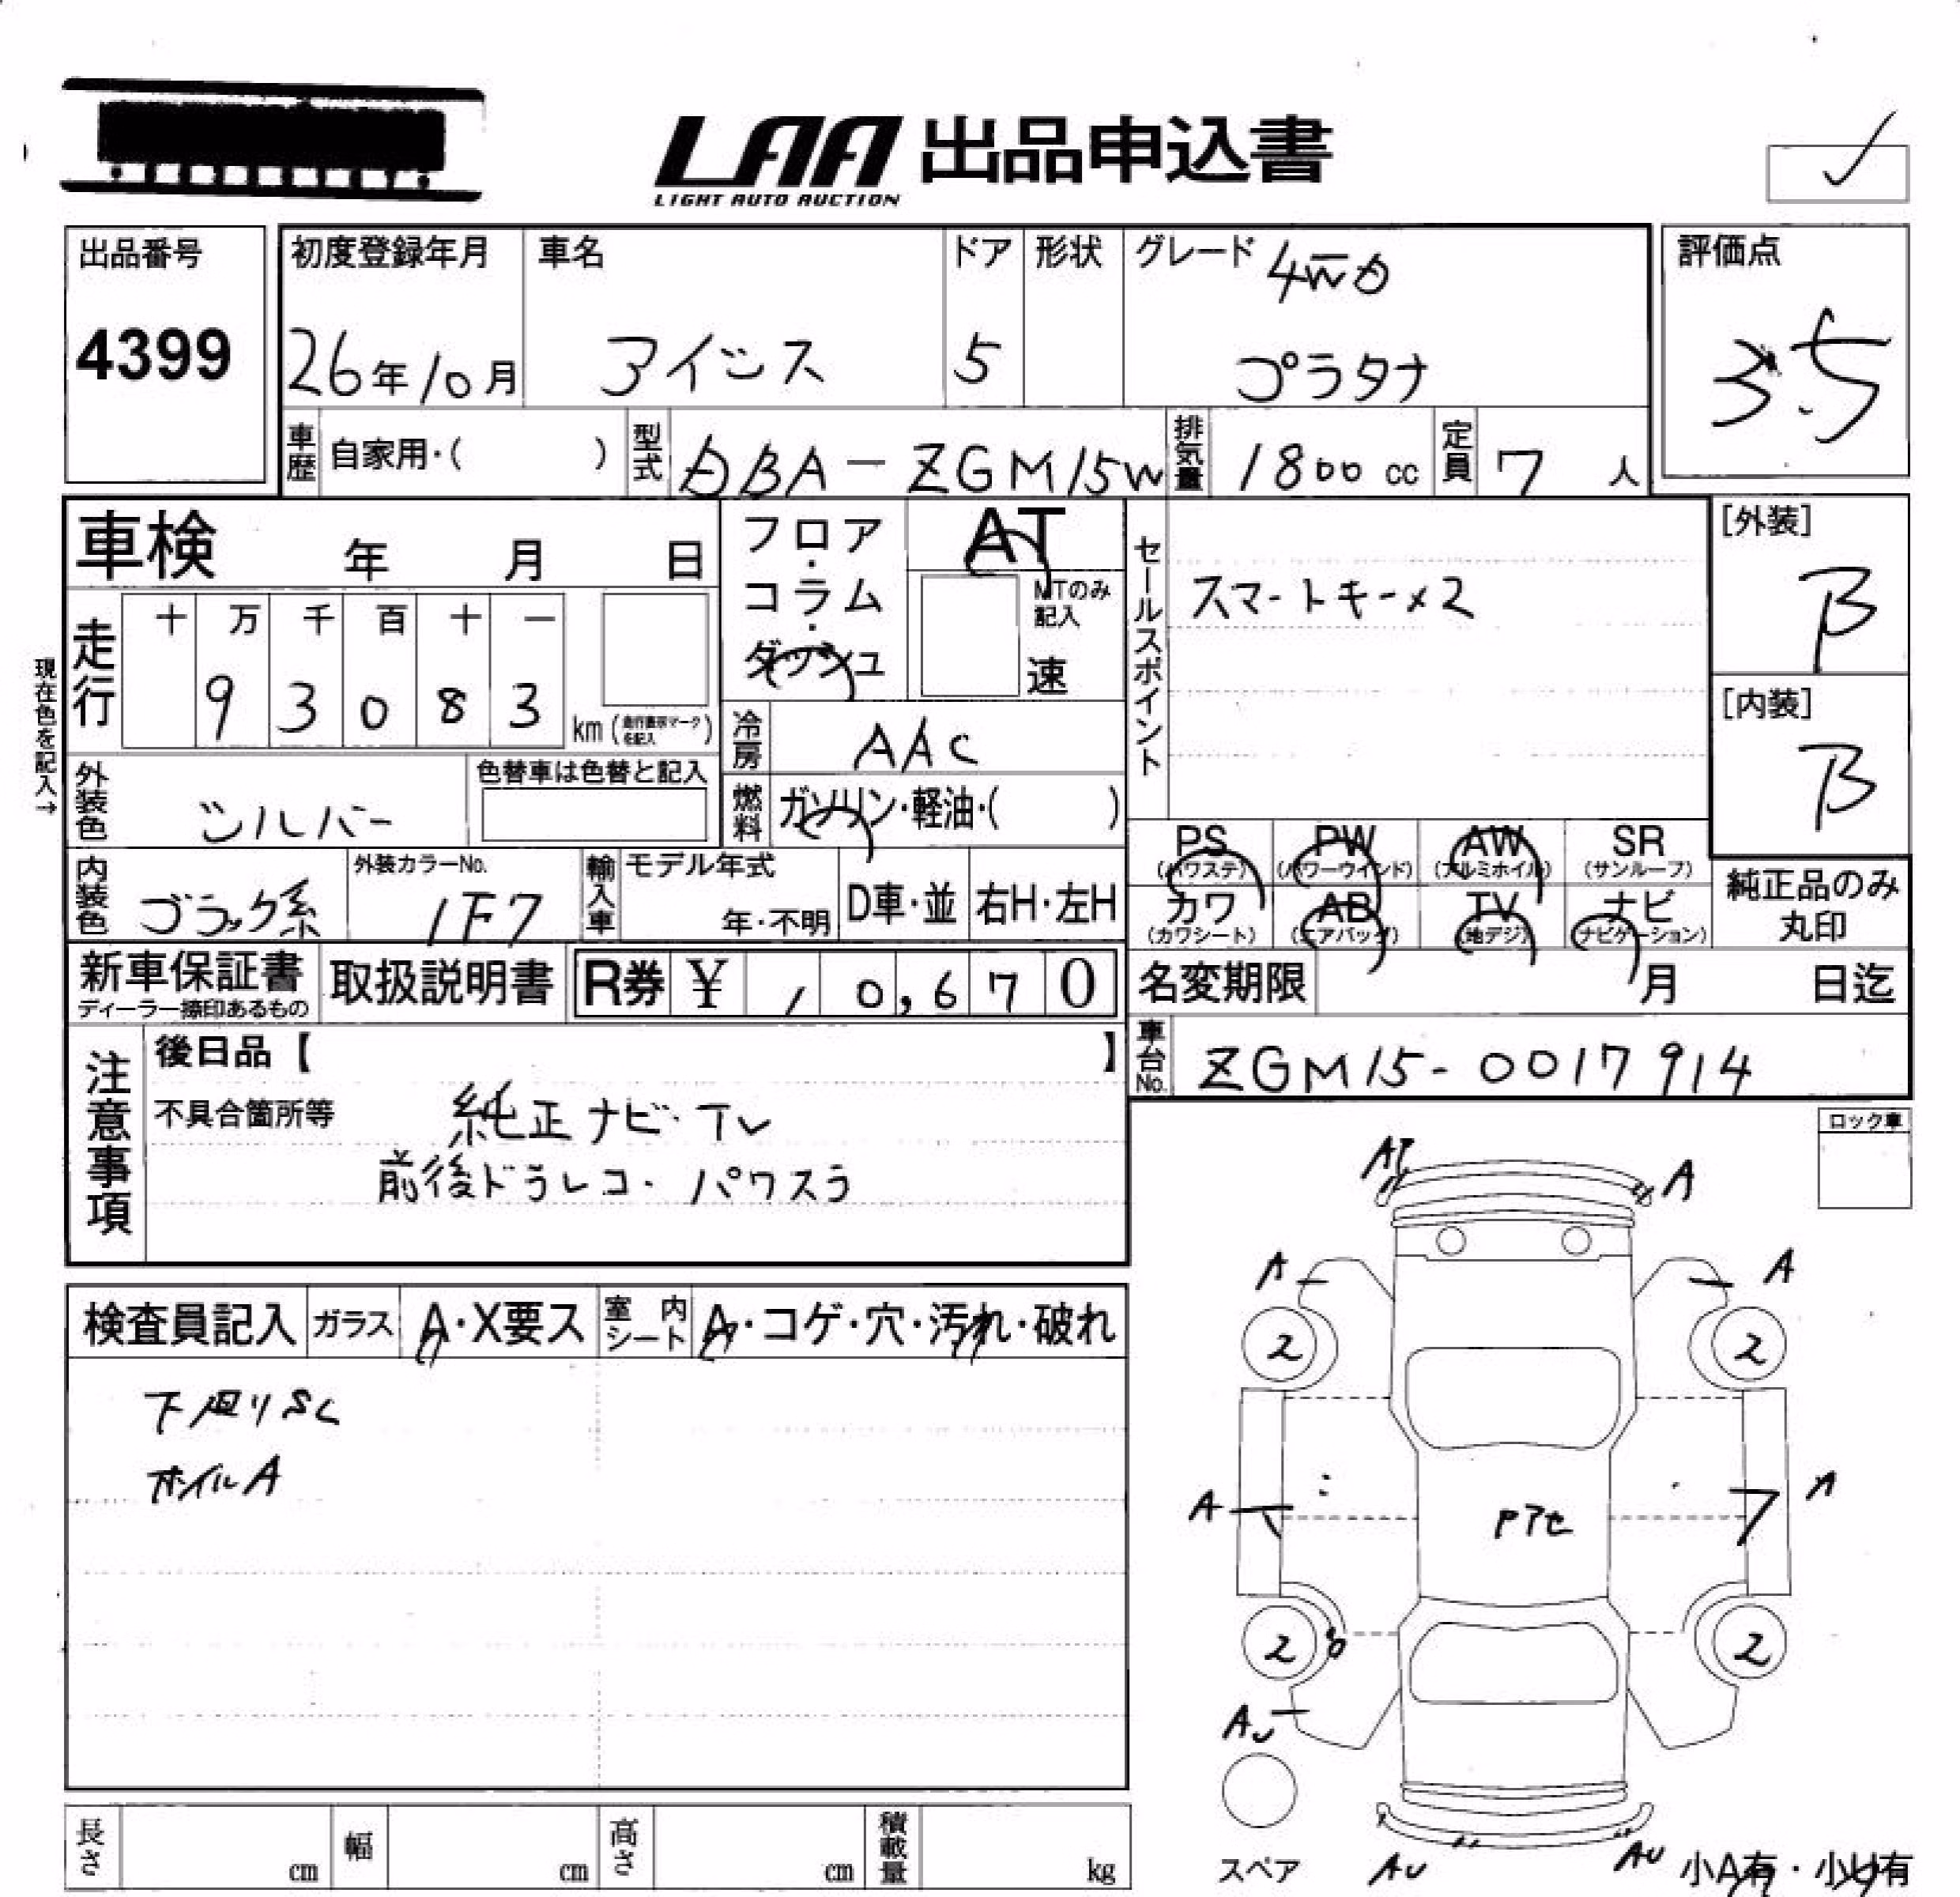 LAA 出品申込書
LIGHT AUTO AUCTION
出品番号
4399
初度登録年月
26年10月
車名
アイシス
ドア
5
形状
グレード 4WD
プラタナ
評価点
3.5
車歴 自家用・( )
型式 DBA-ZGM15W
排気量 1800cc
定員 7人
車検 年 月 日
現在色を記入→
走行
十 万 千 百 十 一
9 3 0 8 3
km(走行表示マークを記入)
フロア・コラム・ダッシュ
AT
MTのみ記入
速
冷房 AAC
燃料 ガソリン・軽油・( )
セールスポイント
スマートキー×2
[外装]
B
[内装]
B
外装色 シルバー
色替車は色替と記入
内装色 ブラック系
外装カラーNo.
1F7
輸入車
モデル年式
年・不明
D車・並
右H・左H
PS (パワステ)
PW (パワーウィンド)
AW (アルミホイル)
SR (サンルーフ)
カワ (カワシート)
AB (エアバッグ)
TV (地デジ)
ナビ (ナビゲーション)
純正品のみ
丸印
新車保証書
ディーラー捺印あるもの
取扱説明書
R券 ¥ 10,670
名変期限 月 日迄
車台No. ZGM15-0017914
注意事項
後日品【 】
不具合箇所等
純正ナビ・TV
前後ドラレコ・パワスラ
ロック車
検査員記入
ガラス A・X要ス
室内シート A・コゲ・穴・汚れ・破れ
下廻りSC
ホイルA
A
A
A
2
2
A
A
2
2
AU
スペア
AU
AU
小A有・小U有
長さ cm
幅 cm
高さ cm
積載量 kg